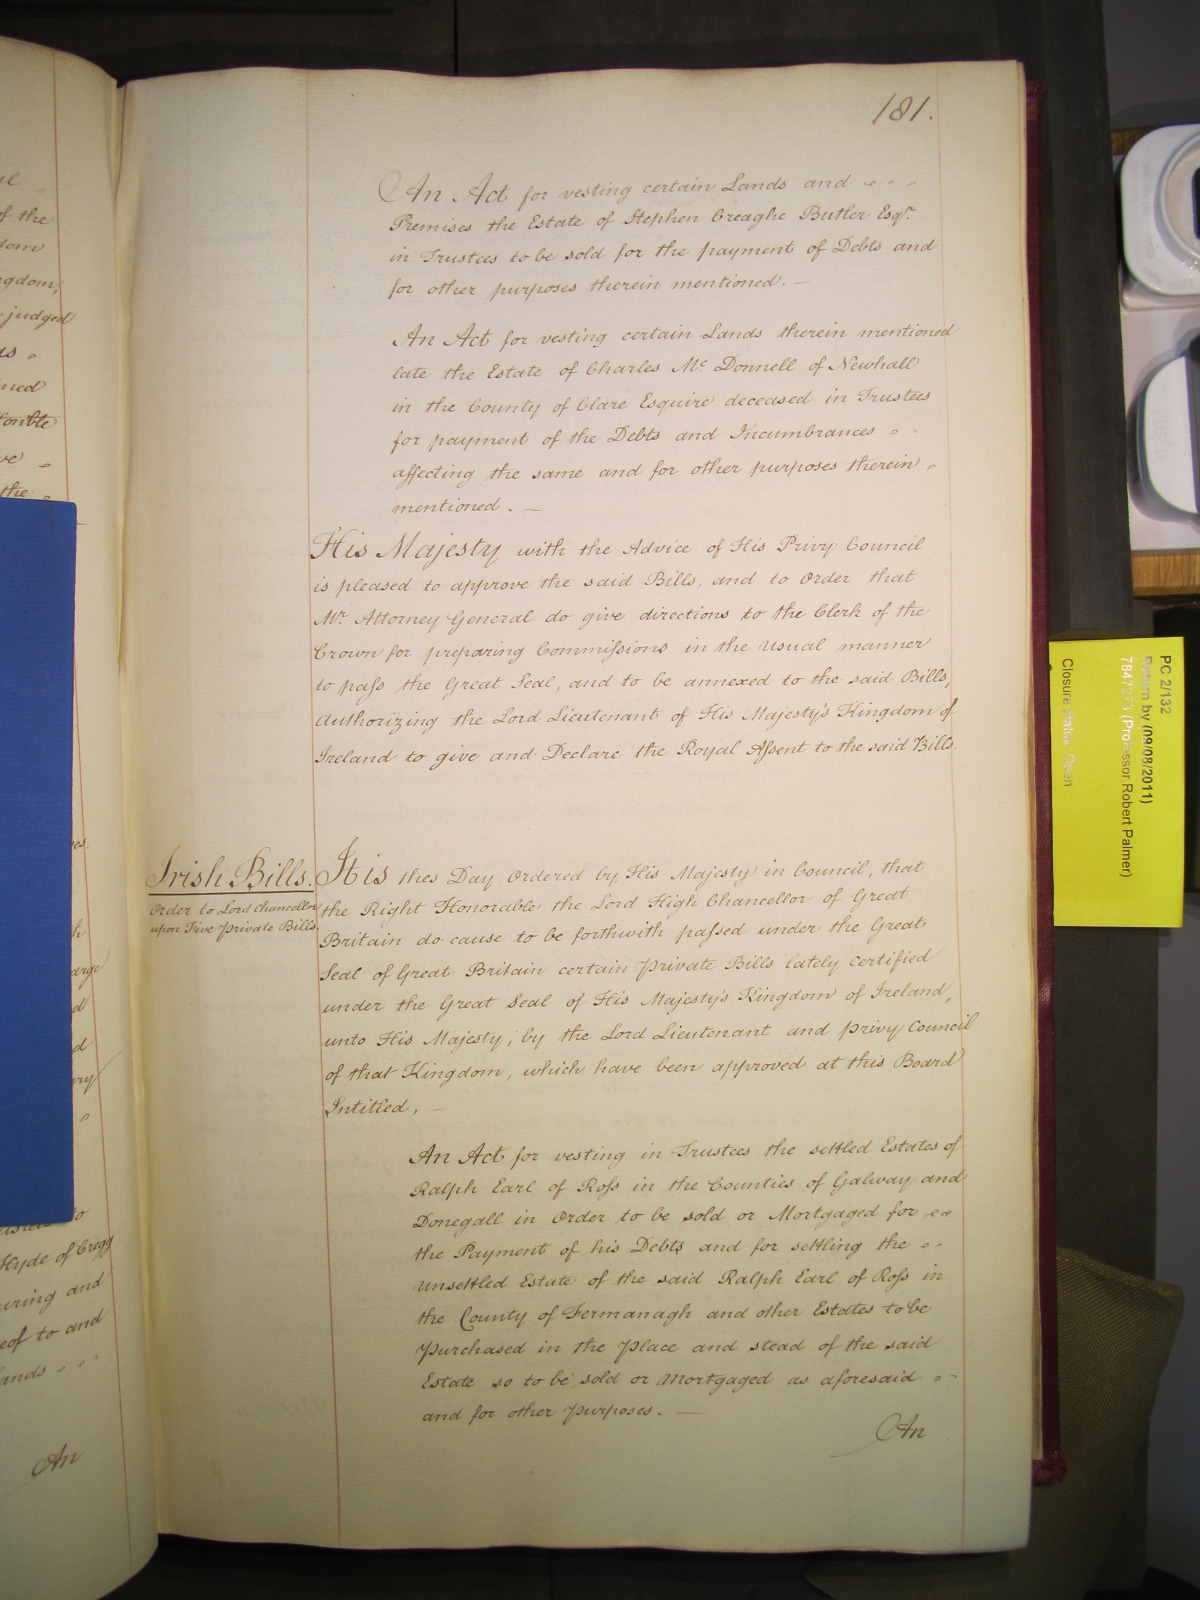 181.
An Act for vesting certain Lands and
Premises the Estate of Stephen Creaghe Butler Esqr.
in Trustees to be sold for the payment of Debts and
for other purposes therein mentioned. —
An Act for vesting certain Lands therein mentioned
late the Estate of Charles Mc Donnell of Newhall
in the County of Clare Esquire deceased in Trustees
for payment of the Debts and Incumbrances
affecting the same and for other purposes therein
mentioned. —
His Majesty with the Advice of His Privy Council
is pleased to approve the said Bills, and to Order that
Mr. Attorney General do give directions to the Clerk of the
Crown for preparing Commissions in the Usual manner
to pass the Great Seal, and to be annexed to the said Bills,
Authorizing the Lord Lieutenant of His Majesty's Kingdom of
Ireland to give and Declare the Royal Assent to the said Bills.
Irish Bills.
Order to Lord Chancellor
upon Five Private Bills.
It is this Day Ordered by His Majesty in Council, that
the Right Honorable the Lord High Chancellor of Great
Britain do cause to be forthwith passed under the Great
Seal of Great Britain certain Private Bills lately Certified
under the Great Seal of His Majesty's Kingdom of Ireland,
unto His Majesty, by the Lord Lieutenant and Privy Council
of that Kingdom, which have been approved at this Board
Intitled, —
An Act for vesting in Trustees the settled Estates of
Ralph Earl of Ross in the Counties of Galway and
Donegall in Order to be sold or Mortgaged for
the Payment of his Debts and for settling the
unsettled Estate of the said Ralph Earl of Ross in
the County of Fermanagh and other Estates to be
Purchased in the Place and stead of the said
Estate so to be sold or Mortgaged as aforesaid
and for other Purposes. —
An
of the
dom
gdom,
judged
the
arge
Hyde of Cregg
uring and
eof to and
ands
An
PC 2/132
Return by (09/08/2011)
(Professor Robert Palmer)
Closure status: Open